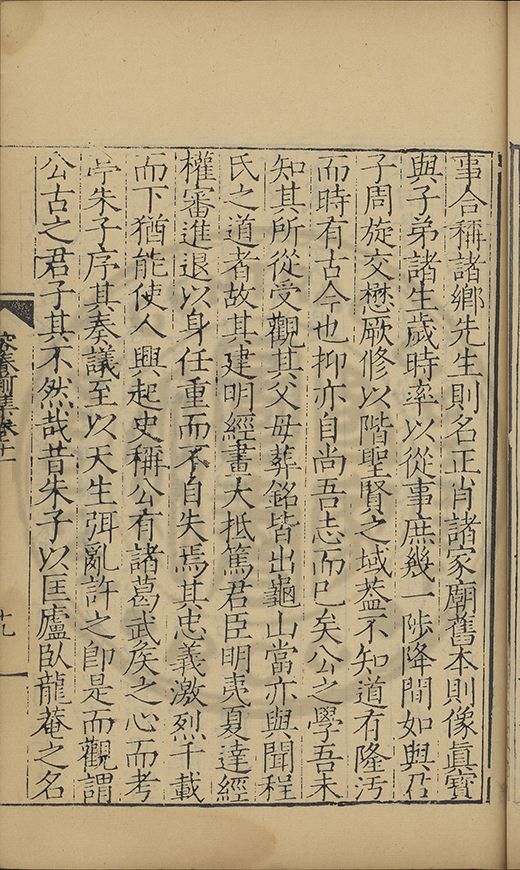 事合稱諸鄉先生則名正肖諸家廟舊本則像眞寶
與子弟諸生歲時率以從事庶幾一陟降間如與召
子周旋交懋厥修以階聖賢之域葢不知道有隆汚
而時有古今也抑亦自尚吾志而已矣公之學吾未
知其所從受觀其父母葬銘皆出龜山當亦與聞程
氏之道者故其建明經畫大抵篤君臣明夷夏達經
權審進退以身任重而不自失焉其忠義激烈千載
而下猶能使人興起史稱公有諸葛武矦之心而考
亭朱子序其奏議至以天生弭亂許之卽是而觀謂
公古之君子其不然哉昔朱子以匡廬臥龍菴之名
十九